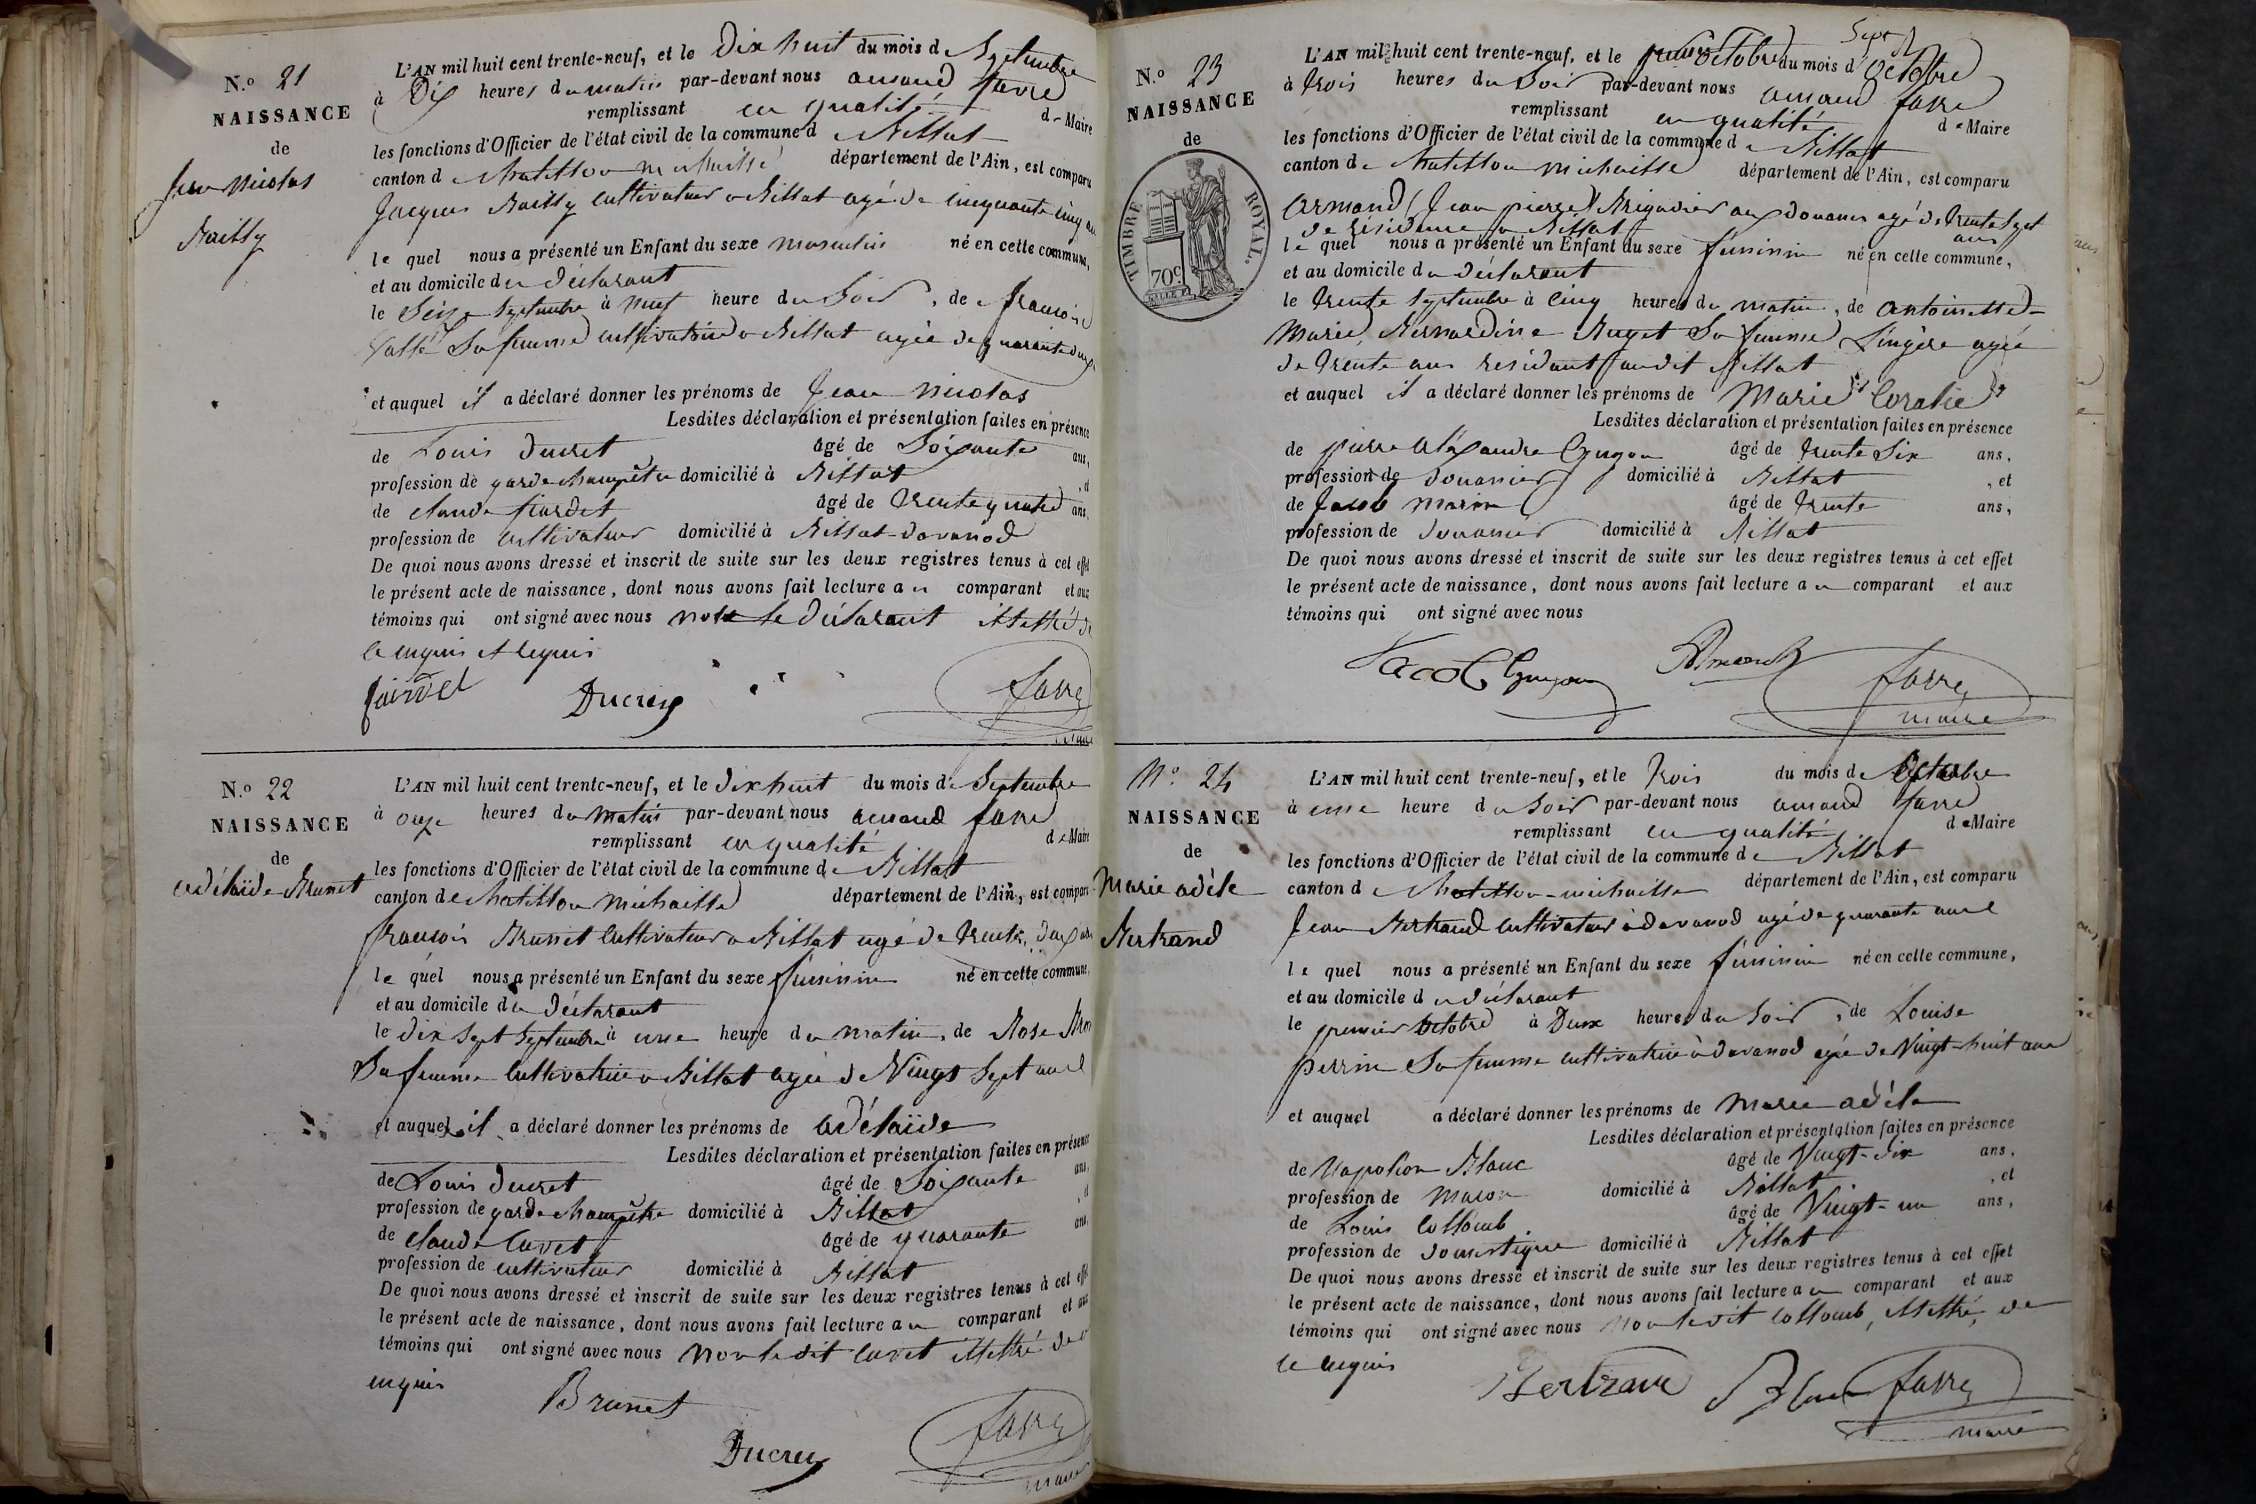 N.º 21
NAISSANCE
de
Jean Nicolas
Bailly
L'AN mil huit cent trente-neuf, et le Dix huit du mois de Septembre
à Dix heures du matin par-devant nous amand favre
remplissant en qualité de Maire
les fonctions d'Officier de l'état civil de la commune de Billiat
canton de Chatillon michaille département de l'Ain, est comparu
Jacques Bailly cultivateur a Billiat agé de cinquante cinq
le quel nous a présenté un Enfant du sexe masculin né en cette commune,
et au domicile du déclarant
le Seize Septembre à neuf heure du Soir, de
Sa femme cultivatrice a Billiat agée de quarante deux
et auquel il a déclaré donner les prénoms de Jean Nicolas
Lesdites déclaration et présentation faites en présence
de Louis Ducret âgé de Soixante ans,
profession de garde champêtre domicilié à Billiat
de claude âgé de trente quatre ans,
profession de cultivateur domicilié à Billiat davanod
De quoi nous avons dressé et inscrit de suite sur les deux registres tenus à cet effet
le présent acte de naissance, dont nous avons fait lecture au comparant et aux
témoins qui ont signé avec nous non le déclarant illettré de
ce enquis et requis
Ducrey
favre
maire
N.º 22
NAISSANCE
de
adélaïde Brunet
L'AN mil huit cent trente-neuf, et le dix huit du mois de Septembre
à onze heures du matin par-devant nous amand favre
remplissant en qualité de Maire
les fonctions d'Officier de l'état civil de la commune de Billiat
canton de chatillon michaille département de l'Ain, est comparu
françois Brunet cultivateur a Billiat agé de trente deux ans
le quel nous a présenté un Enfant du sexe féminin né en cette commune,
et au domicile du déclarant
le dix Sept Septembre à une heure du matin, de Rose
Sa femme cultivatrice a Billiat agée de Vingt Sept ans
et auquel il a déclaré donner les prénoms de adélaïde
Lesdites déclaration et présentation faites en présence
de Louis Ducret âgé de Soixante ans,
profession de garde champêtre domicilié à Billiat
de claude Curvet âgé de quarante ans,
profession de cultivateur domicilié à Billiat
De quoi nous avons dressé et inscrit de suite sur les deux registres tenus à cet effet
le présent acte de naissance, dont nous avons fait lecture au comparant et aux
témoins qui ont signé avec nous non le dit curvet illettré de ce
enquis
Brunet
Ducrey
favre
maire
N.º 23
NAISSANCE
de
TIMBRE ROYAL.
70c
L'AN mil huit cent trente-neuf, et le premier octobre du mois d octobre
à trois heures du Soir par-devant nous amand favre
remplissant en qualité de Maire
les fonctions d'Officier de l'état civil de la commune de Billiat
canton de chatillon michaille département de l'Ain, est comparu
Armand (Jean pierre) Brigadier aux douanes agé de trente Sept
ans
de résidence a Billiat
le quel nous a présenté un Enfant du sexe féminin né en cette commune,
et au domicile du déclarant
le trente Septembre à Cinq heures du matin, de antoinette
Marie Bernardine Buget Sa femme Lingère agée
de trente ans residant audit Billiat
et auquel il a déclaré donner les prénoms de Marie Coralie
Lesdites déclaration et présentation faites en présence
de pierre alexandre Guyon âgé de trente Six ans,
profession de douanier domicilié à Billiat, et
de Jacob marin âgé de trente ans,
profession de douanier domicilié à Billiat
De quoi nous avons dressé et inscrit de suite sur les deux registres tenus à cet effet
le présent acte de naissance, dont nous avons fait lecture au comparant et aux
témoins qui ont signé avec nous
Jacob Guyon Armand favre
maire
N.º 24
NAISSANCE
de
Marie adèle
Bertrand
L'AN mil huit cent trente-neuf, et le trois du mois de Octobre
à une heure du Soir par-devant nous amand favre
remplissant en qualité de Maire
les fonctions d'Officier de l'état civil de la commune de Billiat
canton de chatillon-michaille département de l'Ain, est comparu
Jean Bertrand cultivateur à davanod agé de quarante ans
le quel nous a présenté un Enfant du sexe féminin né en cette commune,
et au domicile du déclarant
le premier octobre à Deux heures du Soir, de Louise
perrin Sa femme cultivatrice à davanod agée de Vingt-huit ans
et auquel a déclaré donner les prénoms de Marie adèle
Lesdites déclaration et présentation faites en présence
de Napoléon Blanc âgé de Vingt-dix ans,
profession de maçon domicilié à Billiat, et
de Louis Collomb âgé de Vingt-un ans,
profession de domestique domicilié à Billiat
De quoi nous avons dressé et inscrit de suite sur les deux registres tenus à cet effet
le présent acte de naissance, dont nous avons fait lecture au comparant et aux
témoins qui ont signé avec nous non le dit Collomb, illettré, de
ce enquis
Bertrand Blanc favre
maire